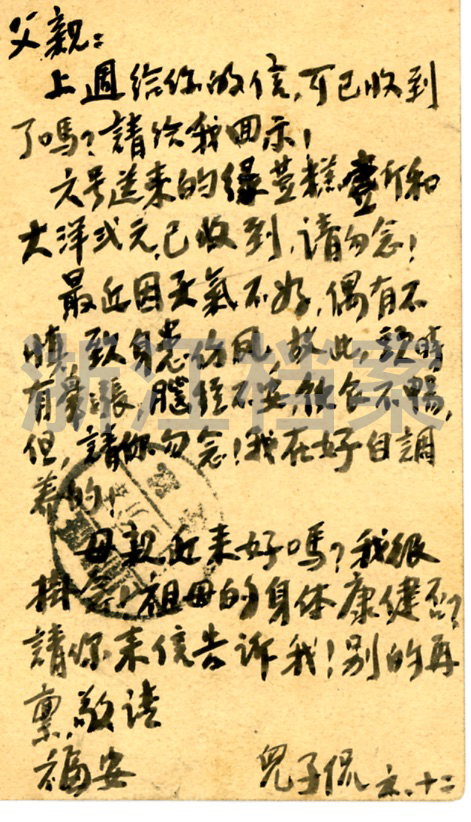 父親：
上週给你的信，可已收到
了嗎？請给我回示！
六号送来的绿荳糕壹斤和
大洋弍元，已收到，请勿念！
最近因天氣不好，偶有不
慎，致身患伤风，故此，頭時
有暈漲，腦經不安，飲食不暢，
但，請你勿念！我在好自調
养的！
母親近来好嗎？我很
掛念！祖母的身体康健否？
請你来信告诉我！别的再
禀，敬请
福安
兒子侃 六、十二
浙江档案